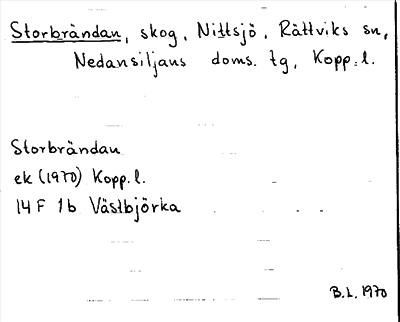 Storbrändan, skog, Nittsjö, Rättviks sn,
Nedansiljans doms. tg, Kopp. l.
Storbrändan
ek (1970) Kopp. l.
14 F 1b Västbjörka
B.L. 1970